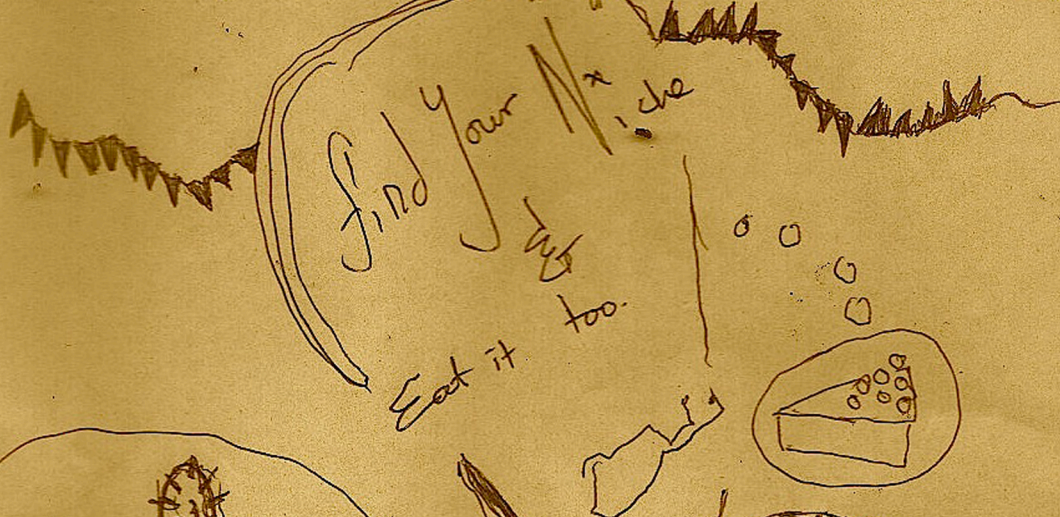 find Your Niche
&
Eat it too.